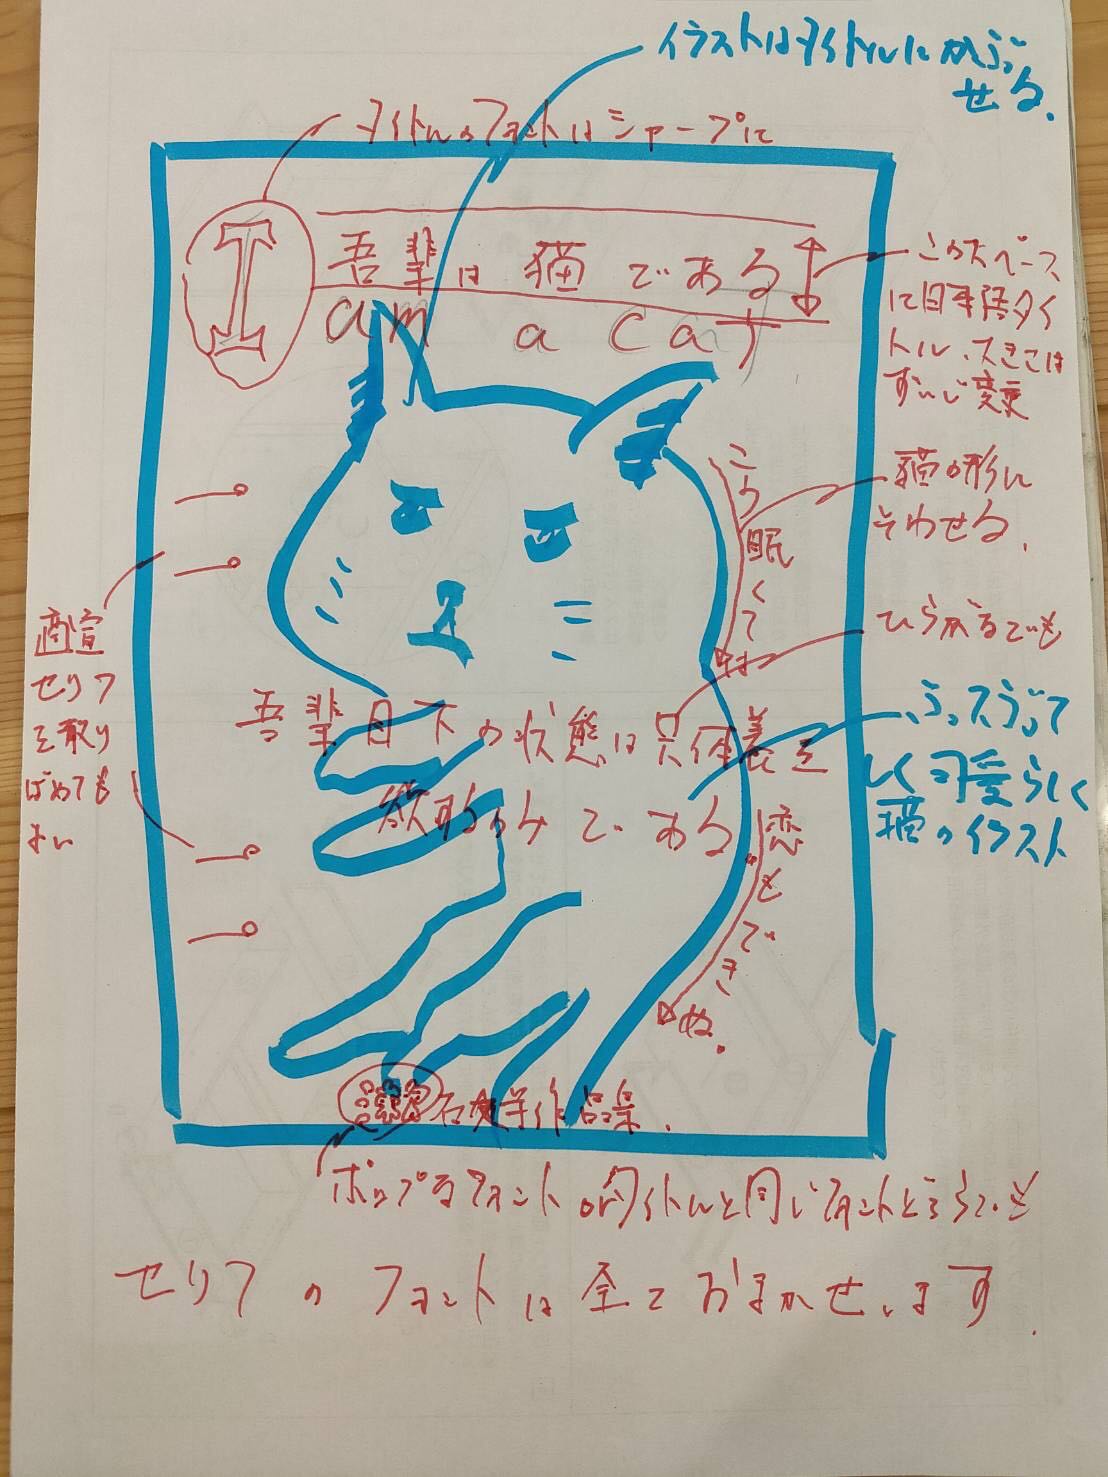 イラストはタイトルにかぶ
せる.
タイトルのフォントはシャープに
I
吾輩は猫である
am a cat
このスペース
に日本語タイ
トル、大きさは
ずいじ変更
猫の形に
そわせる.
こう眠くては
ひらがなでも
適宜
セリフ
を散り
ばめても
よい
吾輩目下の状態は只休養を
欲するのみである
恋もできぬ.
ふてぶてし
く可愛らしく
猫のイラスト
漱石文学作品集.
ポップなフォント or タイトルと同じフォントどちらでも
セリフのフォントは全ておまかせします.